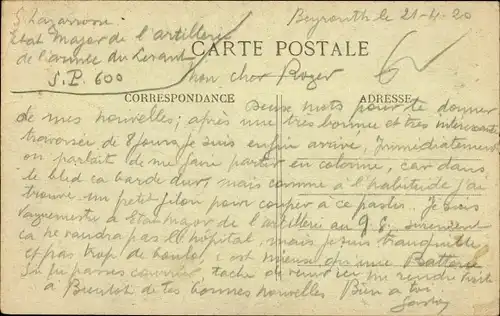 Beyrouth le 21-4-20
Etat Major de l'artillerie
de l'armée du Levant
S.P. 600
CARTE POSTALE
Mon cher Roger
CORRESPONDANCE ADRESSE
Deux mots pour te donner
de mes nouvelles; après une très bonne et très intéressante
traversée de 8 jours je suis enfin arrivé, immédiatement
on parlait de me faire partir en colonne, car dans
le bled ca barde dur, mais comme à l'habitude j'ai
trouvé un petit filon pour couper à ce partir. Je suis
vaguemestre à Etat Major de l'artillerie au
ca ne vaudra pas l'hôpital, mais je suis tranquille
et pas trop de boulot, c'est mieux qu'une Batterie
Si tu passes courrier, tache de venir ici me rendre visite
A Bientot de tes bonnes nouvelles Bien à toi